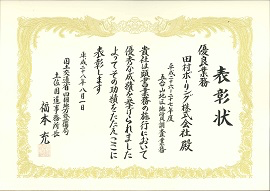 表彰状
優良業務
田村ボーリング株式会社 殿
平成二十六-二十七年度
五台山地区地質調査業務
貴社は頭書業務の施行において
優秀な成績を挙げられました
よってその功績をたたえここに
表彰します
平成二十八年八月一日
国土交通省四国地方整備局
土佐国道事務所長
福本 充